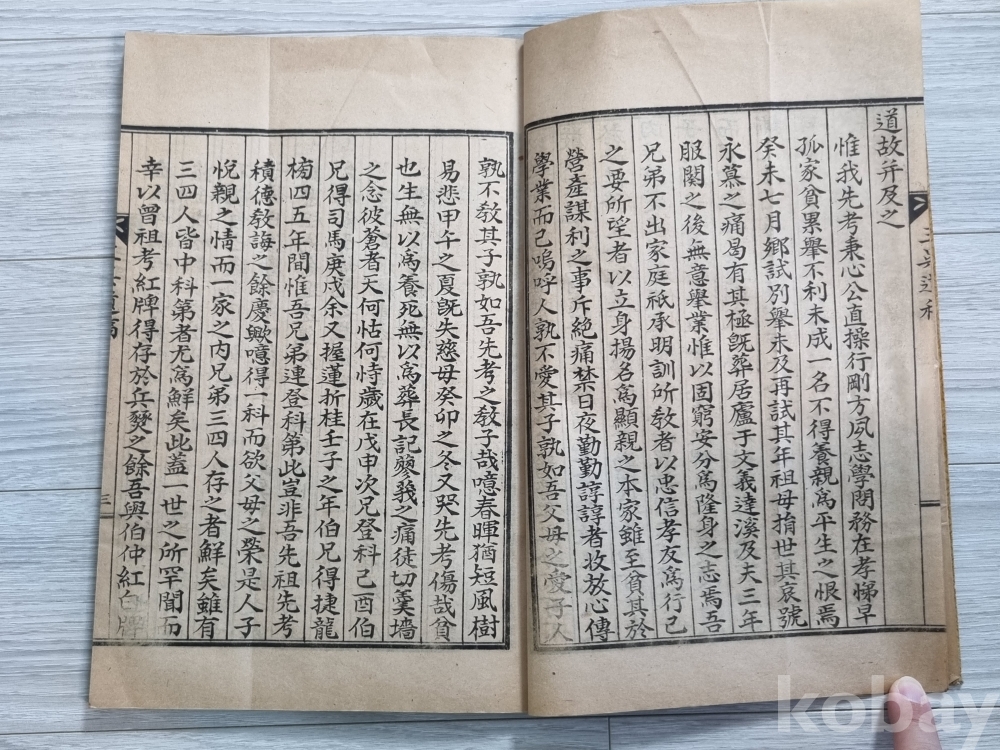 道故并及之
惟我先考秉心公直操行剛方夙志學問務在孝悌早
孤家貧累舉不利未成一名不得養親爲平生之恨焉
癸未七月鄕試別舉未及再試其年祖母捐世其哀號
永慕之痛曷有其極旣葬居廬于文義達溪及夫三年
服闋之後無意舉業惟以固窮安分爲隆身之志焉吾
兄弟不出家庭祇承明訓所敎者以忠信孝友爲行己
之要所望者以立身揚名爲顯親之本家雖至貧其於
營產謀利之事斥絶痛禁日夜勤勤諄諄者收放心傳
學業而已嗚呼人孰不愛其子孰如吾父母之愛子人
孰不敎其子孰如吾先考之敎子哉噫春暉猶短風樹
易悲甲午之夏旣失慈母癸卯之冬又哭先考傷哉貧
也生無以爲養死無以爲葬長記蓼莪之痛徒切羹墻
之念彼蒼者天何怙何恃歲在戊申次兄登科己酉伯
兄得司馬庚戌余又握蓮折桂壬子之年伯兄得捷龍
榜四五年間惟吾兄弟連登科第此豈非吾先祖先考
積德敎誨之餘慶歟噫得一科而欲父母之榮是人子
悅親之情而一家之內兄弟三四人存之者鮮矣雖有
三四人皆中科第者尤爲鮮矣此盖一世之所罕聞而
幸以曾祖考紅牌得存於兵燹之餘吾與伯仲紅白牌
三
kobay